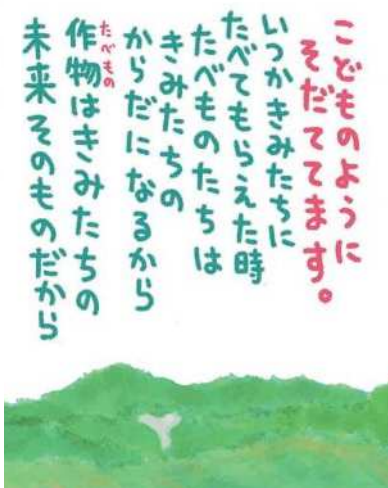 こどものように
そだててます。
いつかきみたちに
たべてもらえた時
たべものたちは
きみたちの
からだになるから
作物はきみたちの
たべもの
未来そのものだから